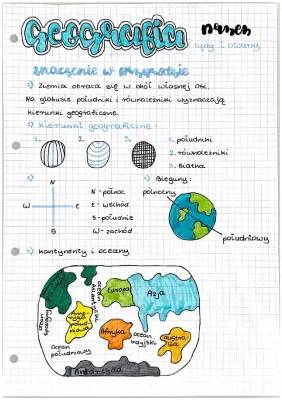 Geografia
lądy i oceany
znaczenie w przyrodzie
Ziemia obraca się w okół własnej osi.
Na globusie południki i równoleżniki wyznaczają
kierunki geograficzne.
kierunki geograficzne:
1. 2. 3.
1. południki
2. równoleżniki
3. siatka
N
W E
S
N - północ
E - wschód
S - południe
W - zachód
Bieguny:
północny
południowy
kontynenty i oceany
Europa
Azja
ocean Atlantycki
Afryka
ocean indyjski
Australia
ocean południowy
Antarktyda